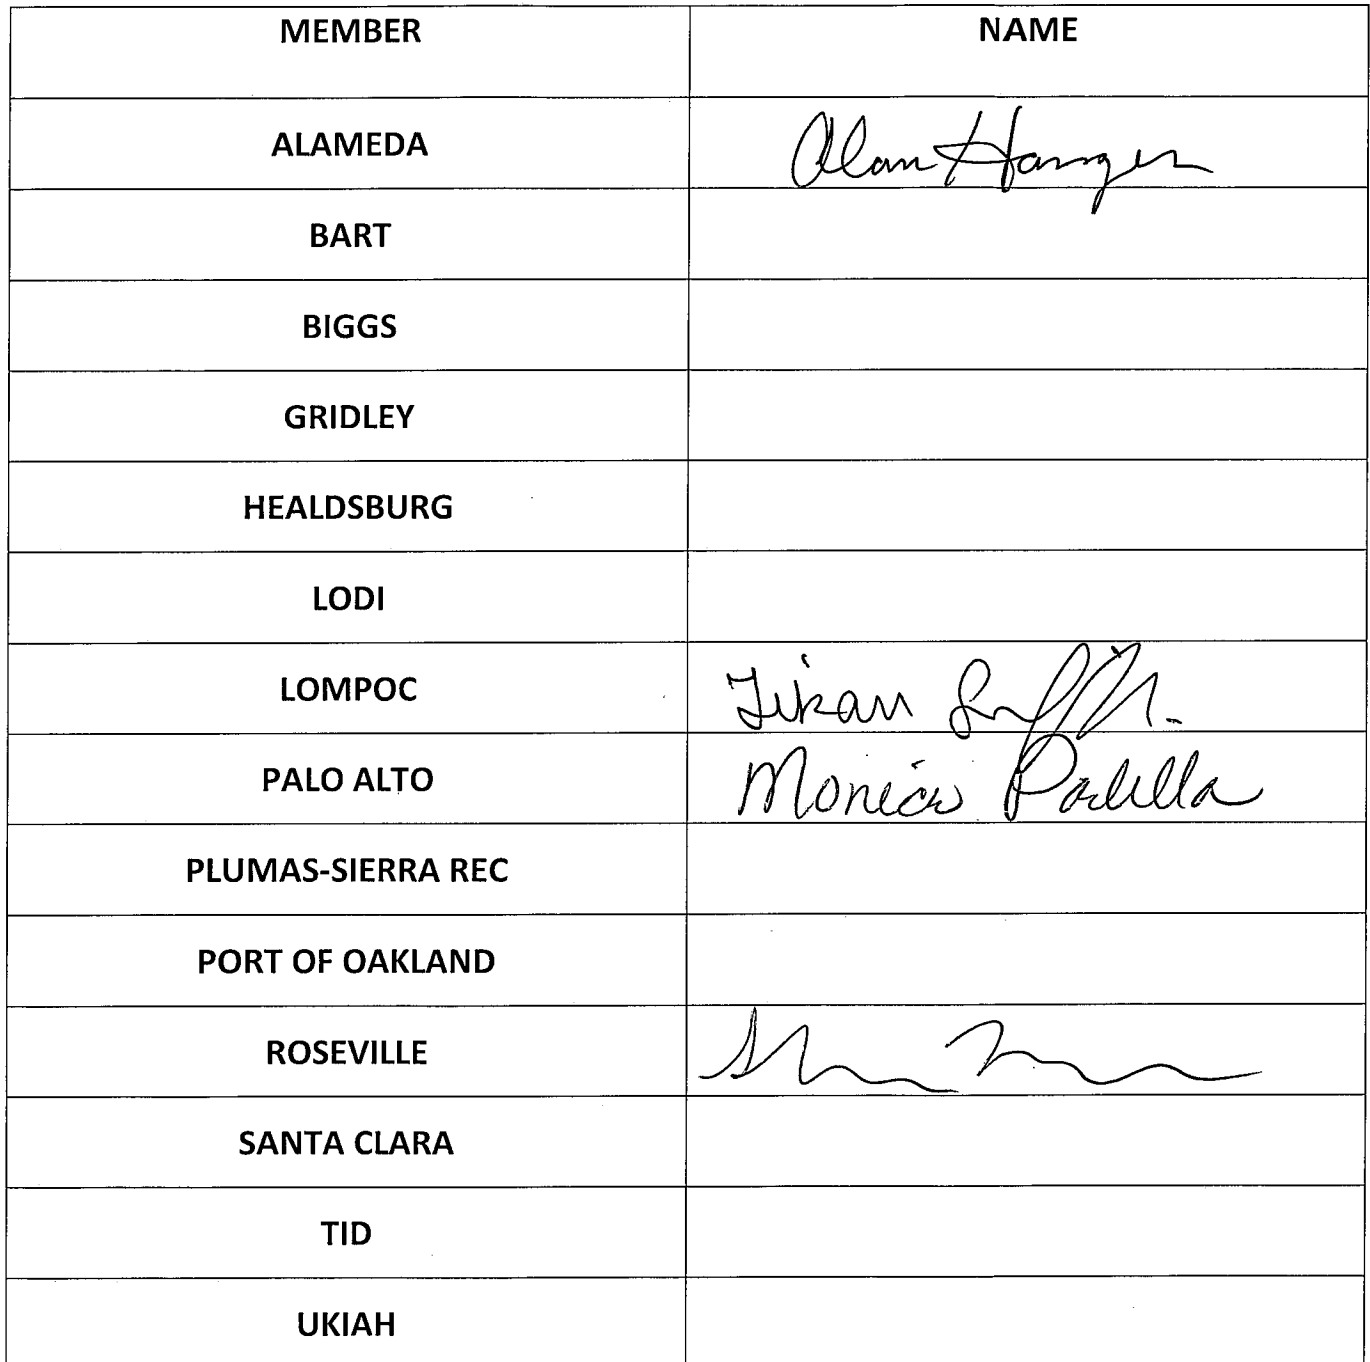 MEMBER NAME
ALAMEDA Alan Hanger
BART
BIGGS
GRIDLEY
HEALDSBURG
LODI
LOMPOC Tikan
PALO ALTO Monica Padilla
PLUMAS-SIERRA REC
PORT OF OAKLAND
ROSEVILLE
SANTA CLARA
TID
UKIAH